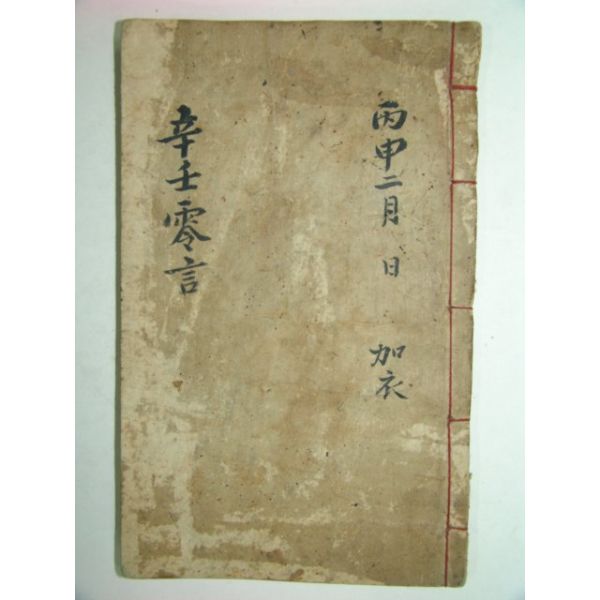 丙申二月 日 加衣
辛壬零言